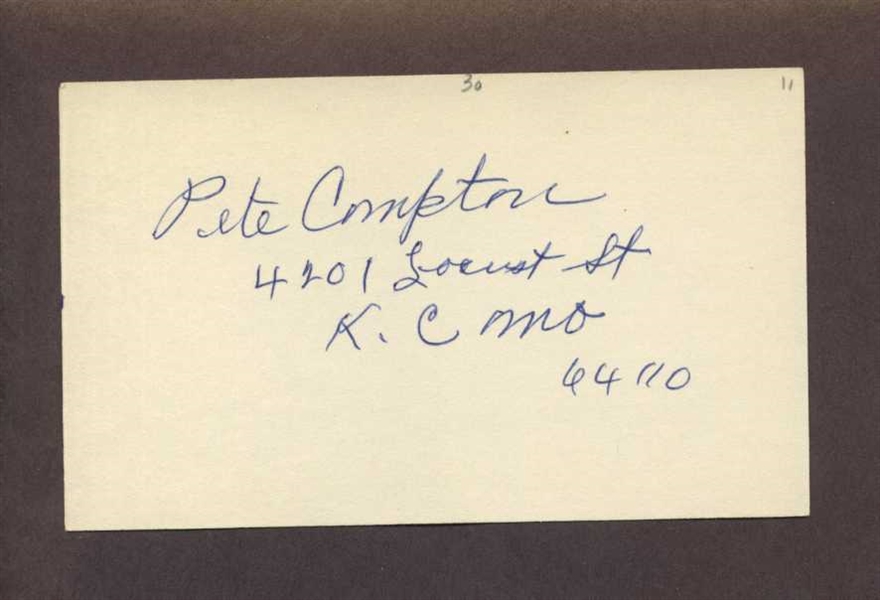 30 11
Pete Compton
4201 Locust St
K. C mo
64110